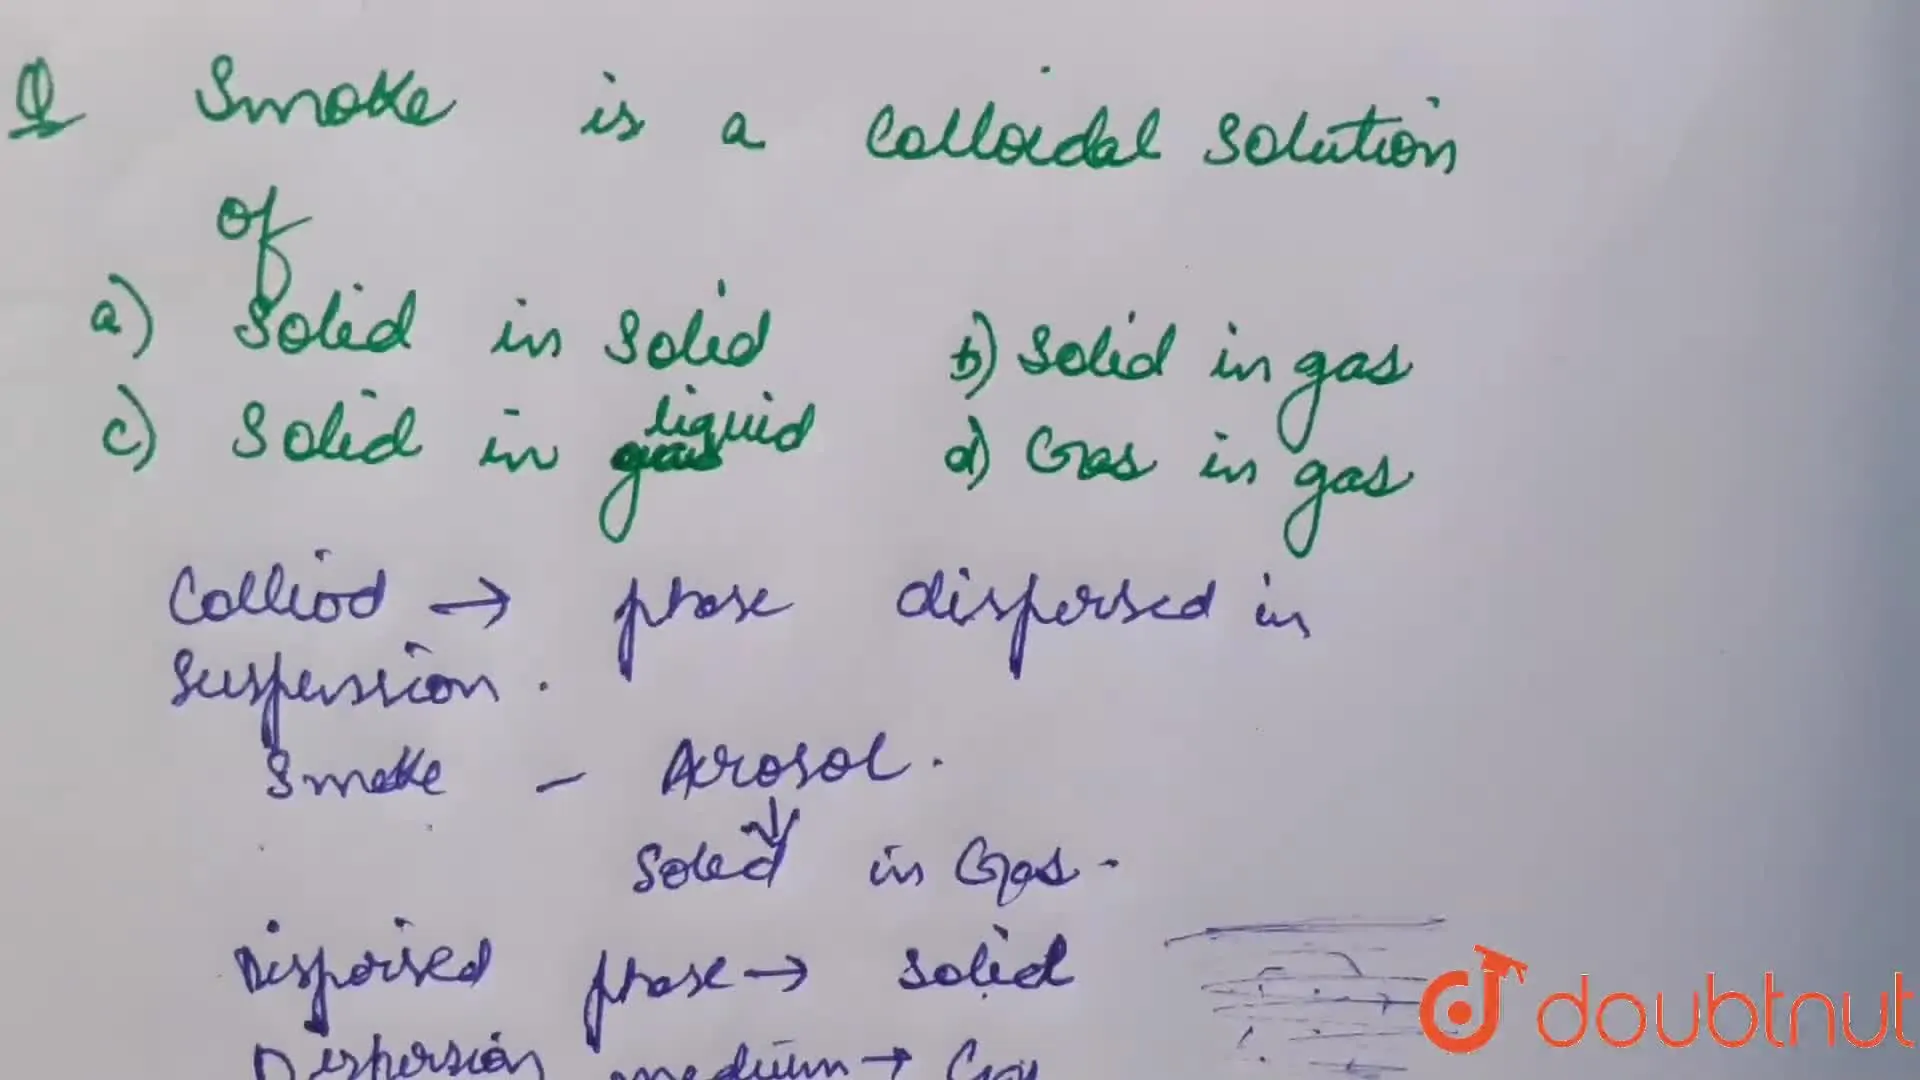 Q Smoke is a colloidal solution
of
a) Solid in solid b) Solid in gas
c) Solid in liquid d) Gas in gas
Colliod → phase dispersed in
suspension.
Smoke - Aerosol.
↓
Solid in Gas.
Dispersed phase → solid
Dispersion medium → Gas
doubtnut